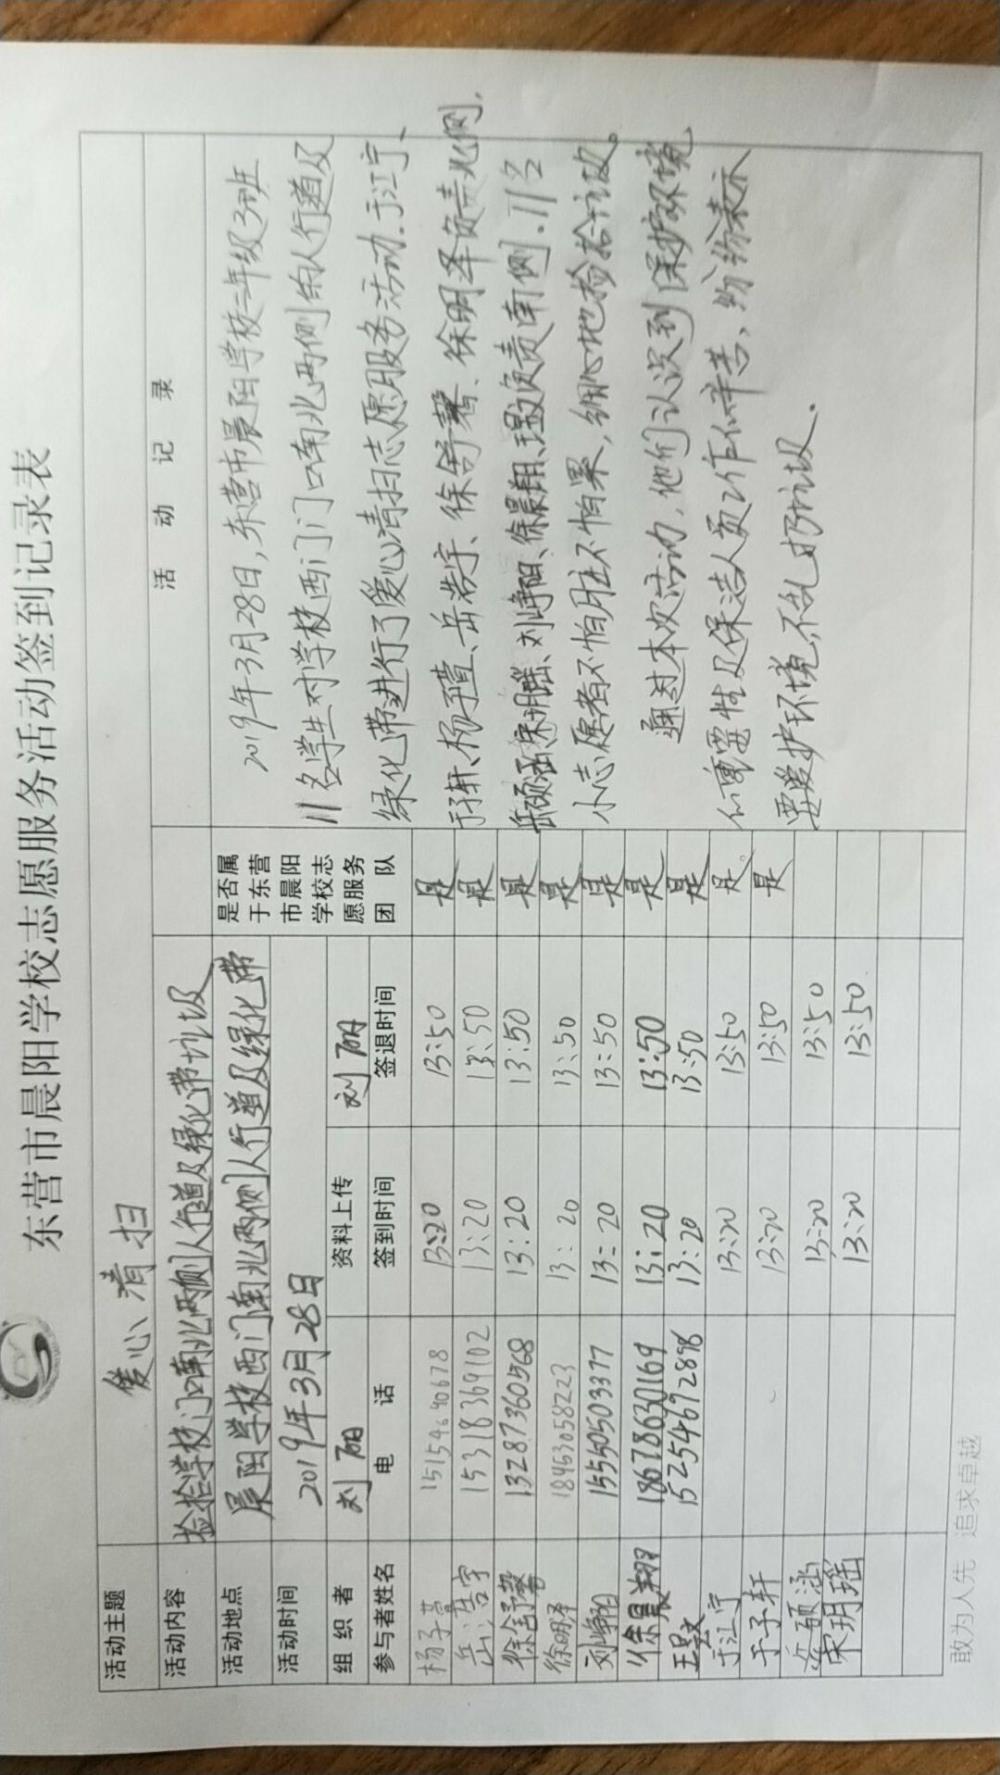 东营市晨阳学校志愿服务活动签到记录表
活动主题 爱心清扫
活动内容 捡拾学校门口南北两侧人行道及绿化带垃圾
活动地点 晨阳学校西门南北两侧人行道及绿化带
活动时间 2019年3月28日
组织者 刘丽 资料上传 刘丽
是否属于东营市晨阳学校志愿服务团队
参与者姓名 电话 签到时间 签退时间
15154640678 13:20 13:50 是
岳浩宇 15318369102 13:20 13:50 是
徐舒馨 13287360568 13:20 13:50 是
徐明泽 18463058223 13:20 13:50 是
刘峥阳 15550503377 13:20 13:50 是
徐晨翔 18678630169 13:20 13:50 是
15254692898 13:20 13:50 是
于江宁 13:20 13:50 是。
于子轩 13:20 13:50 是
岳硕涵 13:20 13:50
宋玥瑶 13:20 13:50
活动记录
2019年3月28日,东营市晨阳学校二年级3班
11名学生对学校西门门口南北两侧的人行道及
绿化带进行了爱心清扫志愿服务活动.于江宁、
于子轩、杨子萱、岳浩宇、徐舒馨、徐明泽负责北侧,
岳硕涵、宋玥瑶、刘峥阳、徐晨翔、负责南侧.11名
小志愿者不怕脏不怕累,细心地捡拾垃圾。
通过本次活动,他们认识到保护环境
的重要性及保洁人员工作的辛苦、纷纷表示
要爱护环境,不乱扔垃圾.
敢为人先 追求卓越